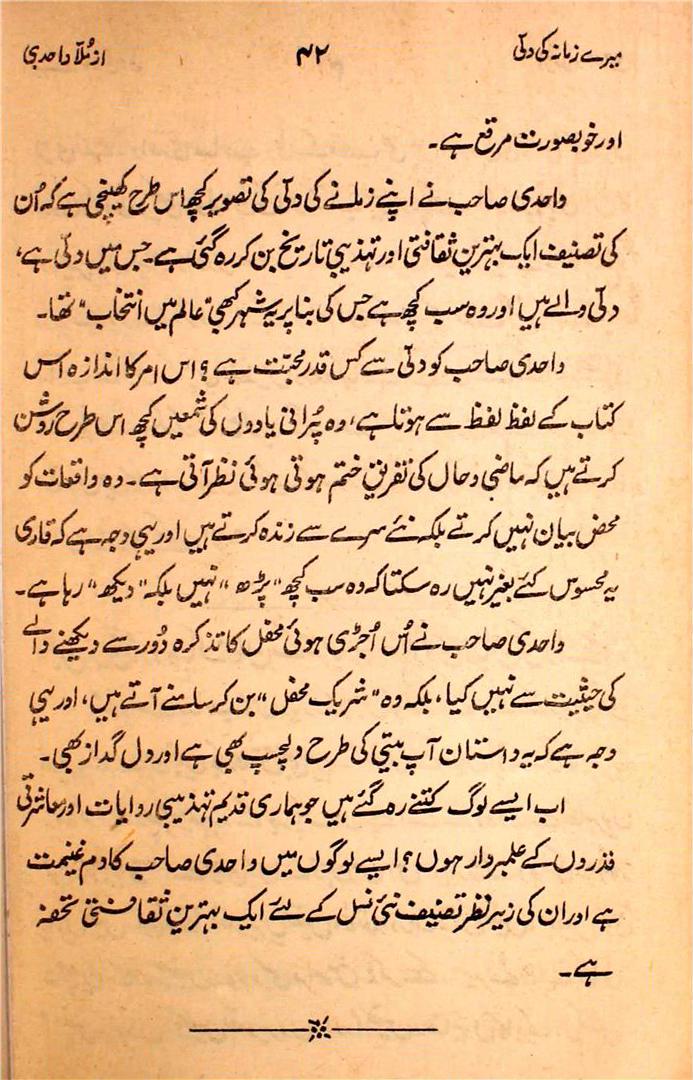 میرے زمانہ کی دلّی ۴۲ از مُلّا واحدی
اور خوبصورت مرقع ہے۔
واحدی صاحب نے اپنے زمانے کی دلّی کی تصویر کچھ اس طرح کھینچی ہے کہ اُن
کی تصنیف ایک بہترین ثقافتی اور تہذیبی تاریخ بن کر رہ گئی ہے۔ جس میں دلّی ہے،
دلّی والے ہیں اور وہ سب کچھ ہے جس کی بنا پر یہ شہر کبھی “عالم میں انتخاب” تھا۔
واحدی صاحب کو دلّی سے کس قدر محبّت ہے؟ اس امر کا اندازہ اس
کتاب کے لفظ لفظ سے ہوتا ہے، وہ پُرانی یادوں کی شمعیں کچھ اس طرح روشن
کرتے ہیں کہ ماضی و حال کی تفریق ختم ہوتی ہوئی نظر آتی ہے۔ وہ واقعات کو
محض بیان نہیں کرتے بلکہ نئے سرے سے زندہ کرتے ہیں اور یہی وجہ ہے کہ قاری
یہ محسوس کئے بغیر نہیں رہ سکتا کہ وہ سب کچھ “پڑھ” نہیں بلکہ “دیکھ” رہا ہے۔
واحدی صاحب نے اُس اُجڑی ہوئی محفل کا تذکرہ دُور سے دیکھنے والے
کی حیثیت سے نہیں کیا، بلکہ وہ “شریک محفل” بن کر سامنے آتے ہیں، اور یہی
وجہ ہے کہ یہ داستان آپ بیتی کی طرح دلچسپ بھی ہے اور دل گداز بھی۔
اب ایسے لوگ کتنے رہ گئے ہیں جو ہماری قدیم تہذیبی روایات اور معاشرتی
قدروں کے علمبردار ہوں؟ ایسے لوگوں میں واحدی صاحب کا دم غنیمت
ہے اور ان کی زیر نظر تصنیف نئی نسل کے لئے ایک بہترین ثقافتی تحفہ
ہے۔